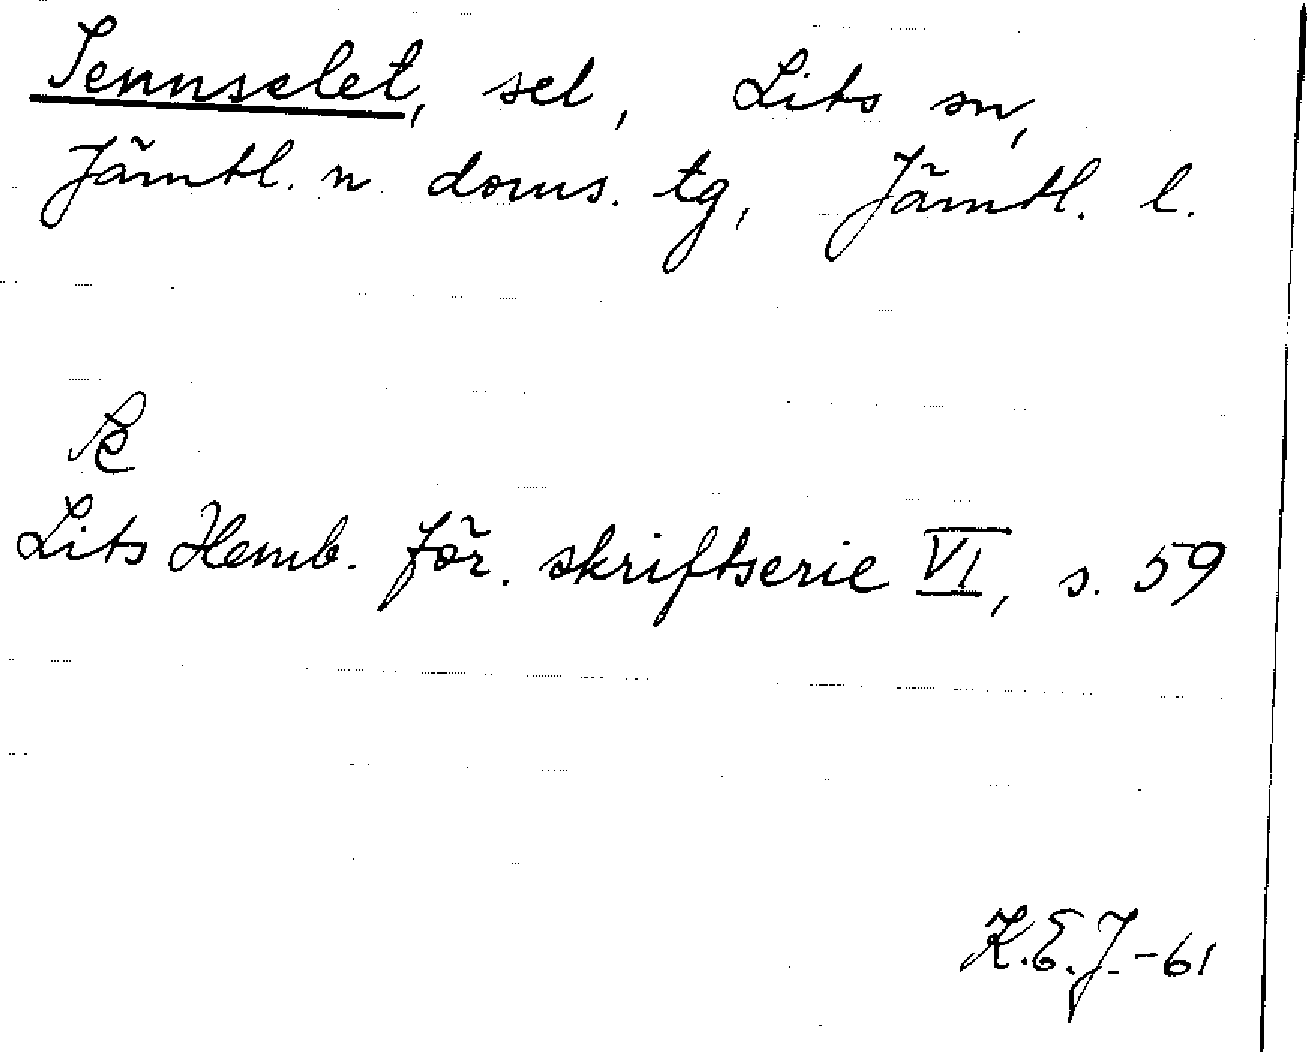 Sennselet, sel, Lits sn,
Jämtl. n. doms. tg, Jämtl. l.
Lits Hemb. för. skriftserie VI, s. 59
K.E.J.-61